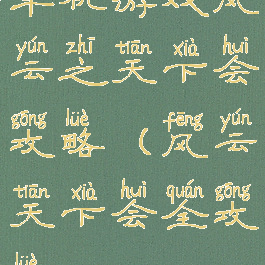 单机游戏风
yún zhī tiān xià huì
云之天下会
gōng lüè fēng yún
攻略（风云
tiān xià huì quán gōng
天下会全攻
lüè